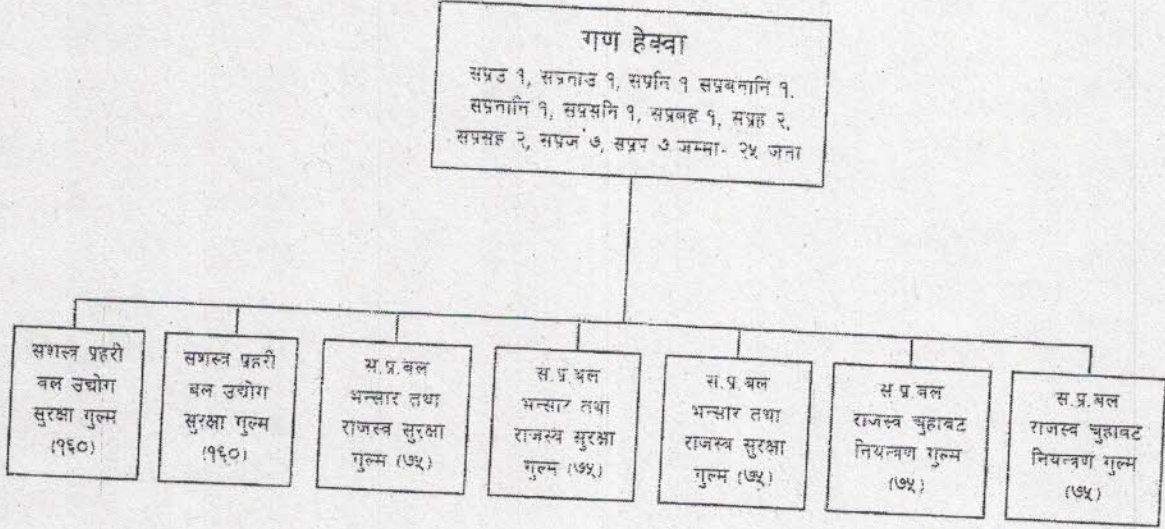 गण हेक्वा
सप्रउ १, सप्रनाउ १, सप्रनि १ सप्रबनानि १.
सप्रनानि १, सप्रसनि १, सप्रबह १, सप्रह २,
सप्रसह २, सप्रज ७, सप्रप ७ जम्मा- २५ जना
सशस्त्र प्रहरी
बल उद्योग
सुरक्षा गुल्म
(१६०)
सशस्त्र प्रहरी
बल उद्योग
सुरक्षा गुल्म
(१६०)
स.प्र.बल
भन्सार तथा
राजस्व सुरक्षा
गुल्म (७५)
स.प्र.बल
भन्सार तथा
राजस्व सुरक्षा
गुल्म (७५)
स.प्र.बल
भन्सार तथा
राजस्व सुरक्षा
गुल्म (७५)
स.प्र.बल
राजस्व चुहावट
नियन्त्रण गुल्म
(७५)
स.प्र.बल
राजस्व चुहावट
नियन्त्रण गुल्म
(७५)